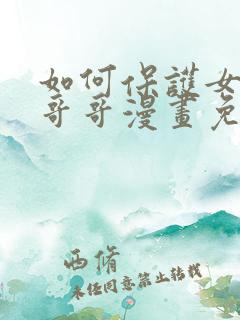 如何保護女
哥哥漫畫免
西脩
未経同意禁止轉載